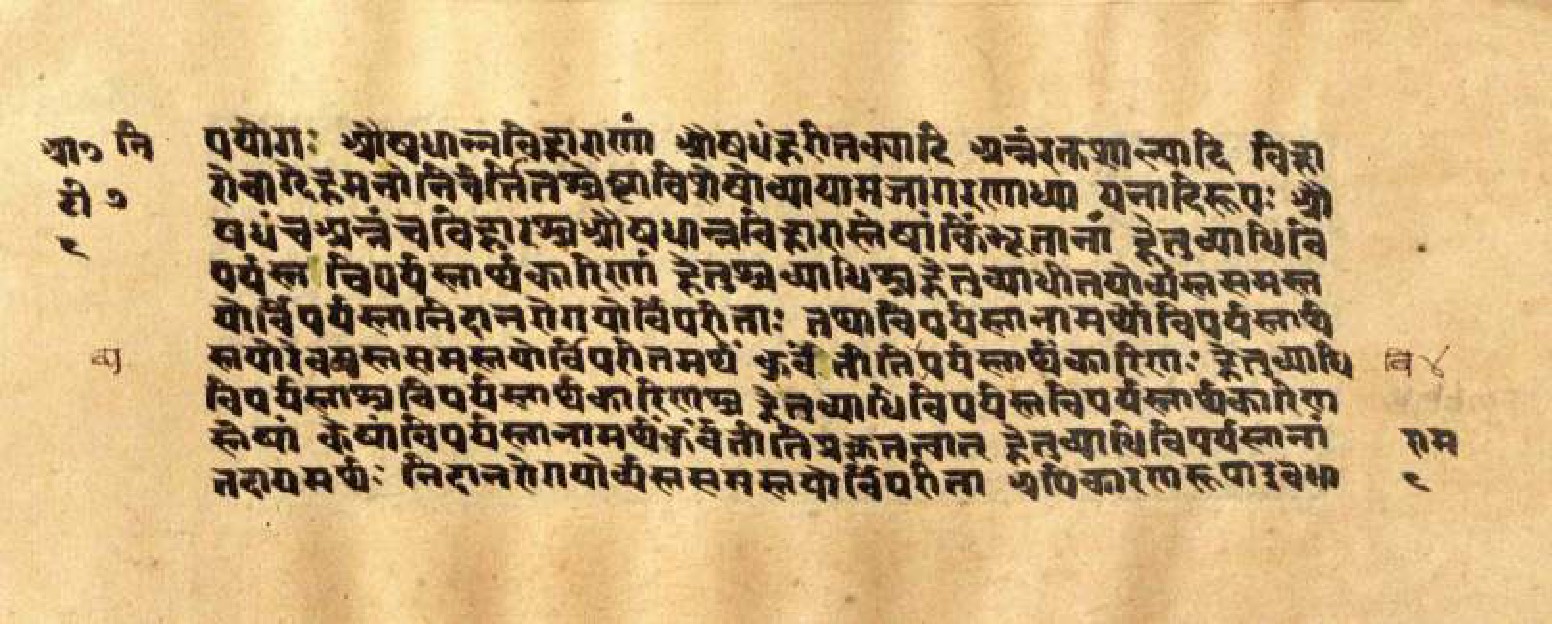 पयोगः औषधान्नविहाराणां औषधंहरीतक्यादि अन्नंरक्तशाल्यादि विहा
रोवाग्देहमनोनिर्वर्त्तितश्चेष्टाविशेषोव्यायामजागरणाध्ययनादिरूपः औ
षधंचअन्नंचविहारश्चऔषधान्नविहारास्तेषांकिंभूतानां हेतुव्याधिवि
पर्यस्त विपर्यस्तार्थकारिणां हेतुश्चव्याधिश्चहेतुव्याधीतयोर्व्यस्तसमस्त
योर्विपर्यस्तानिदानरोगयोर्विपरीताः तथाविपर्यस्तानामर्थोविपर्यस्तार्थ
स्तयोरेवव्यस्तसमस्तयोर्विपरीतमर्थं कुर्वंतीतिपर्यस्तार्थकारिणः हेतुव्याधि
विपर्यस्ताश्चविपर्यस्तार्थकारिणश्च हेतुव्याधिविपर्यस्तविपर्यस्तार्थकारिण
स्तेषां केषांविपर्यस्तानामर्थंकुर्वंतीतिप्रकृतत्वात हेतुव्याधिविपर्यस्तानां
तदायमर्थः निदानरोगयोर्व्यस्तसमस्तयोर्विपरीता अपिकारणरूपादुवधा
मा॰ नि
टी॰
१
व्य
वि
राम
१